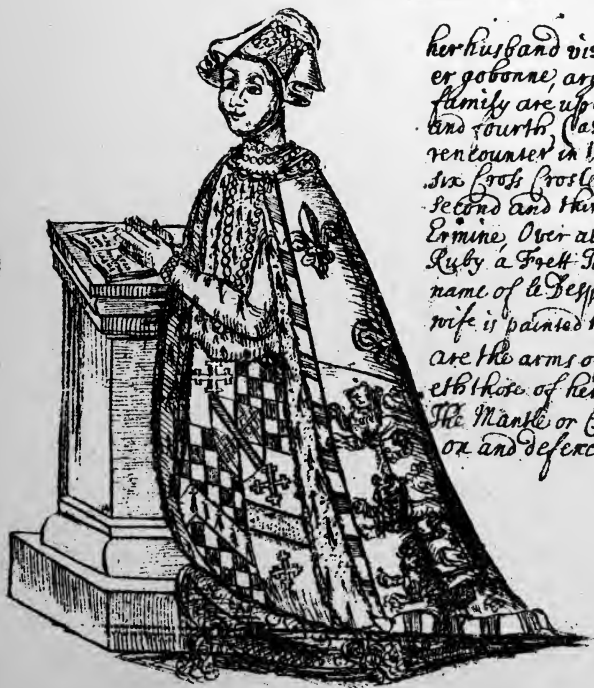 her husband vis
er gobonne, arg
family are upo
and fourth,
rencounter in
six Cross Crosle
Second and thir
Ermine, Over al
Ruby a Frett
name of le Desp
wife is painted
are the arms o
eth those of her
The Mantle or
on and defence